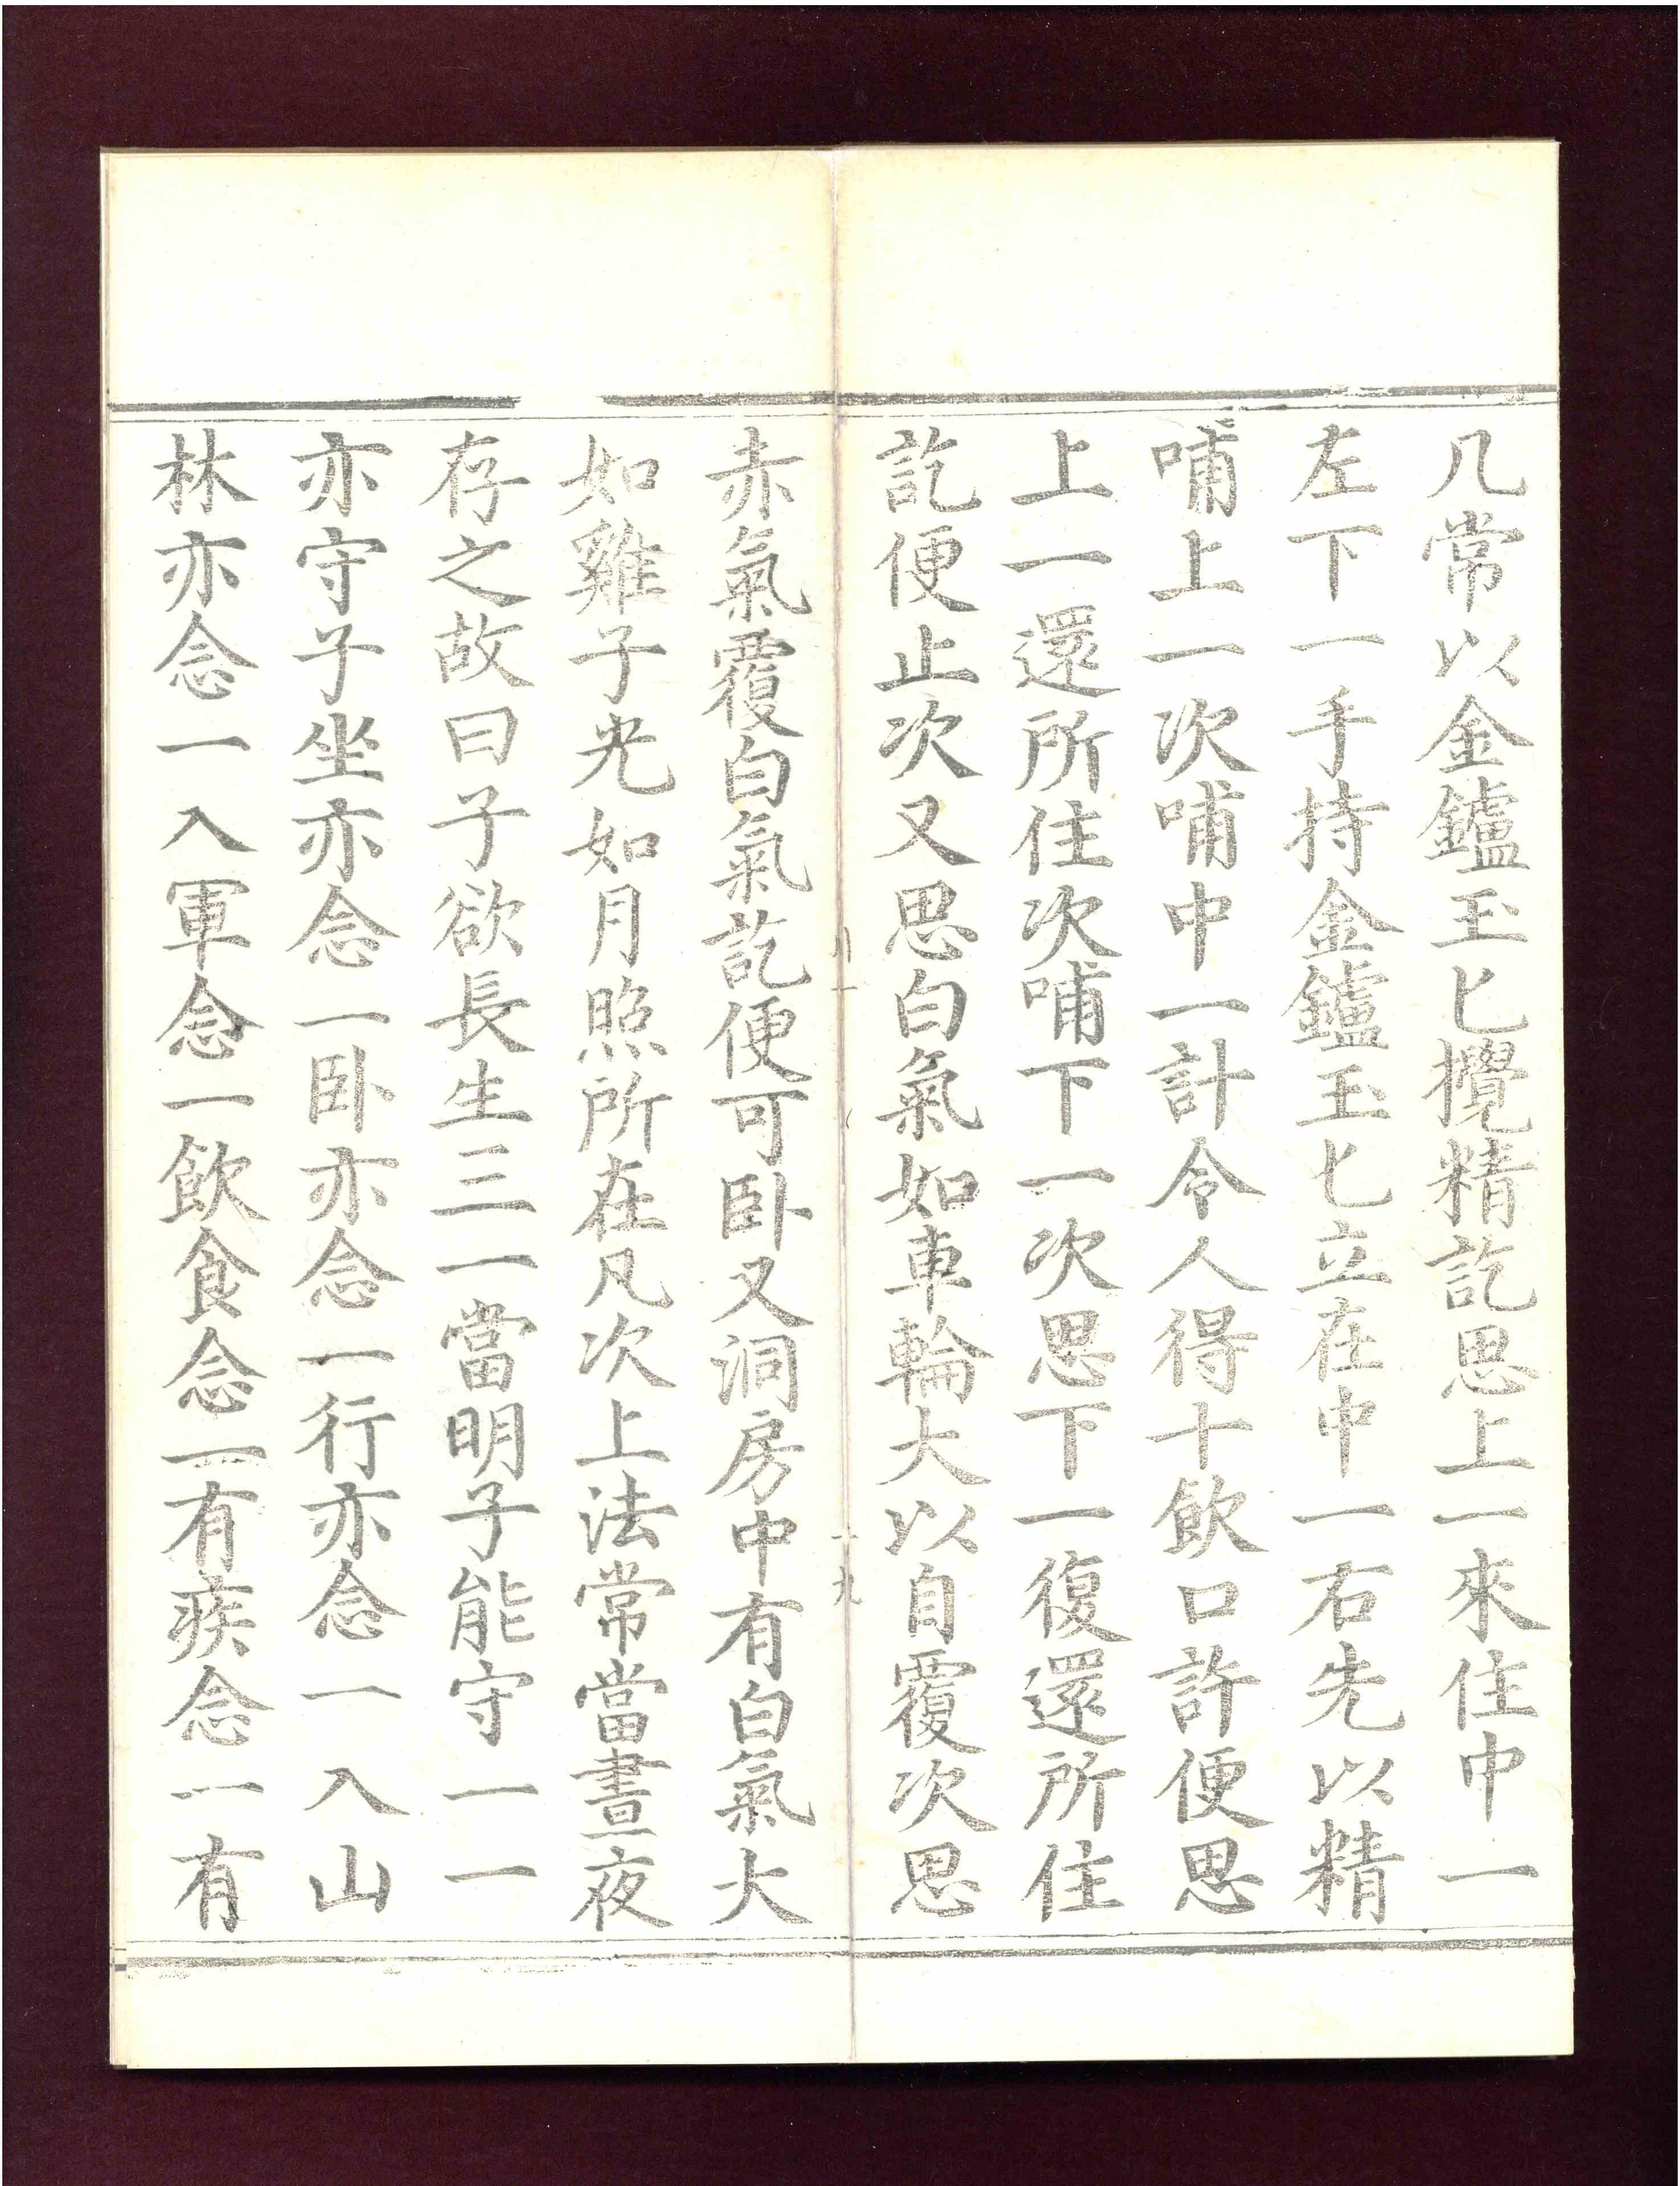 几常以金鑪玉匕攪精訖思上一來住中一
左下一手持金鑪玉匕立在中一右先以精
哺上一次哺中一計令人得十飲口許便思
上一還所住次哺下一次思下一復還所住
訖便止次又思白氣如車輪大以自覆次思
赤氣覆白氣訖便可卧又洞房中有白氣大
如雞子光如月照所在凡次上法常當晝夜
存之故曰子欲長生三一當明子能守一一
亦守子坐亦念一卧亦念一行亦念一入山
林亦念一入軍念一飲食念一有疾念一有
十九